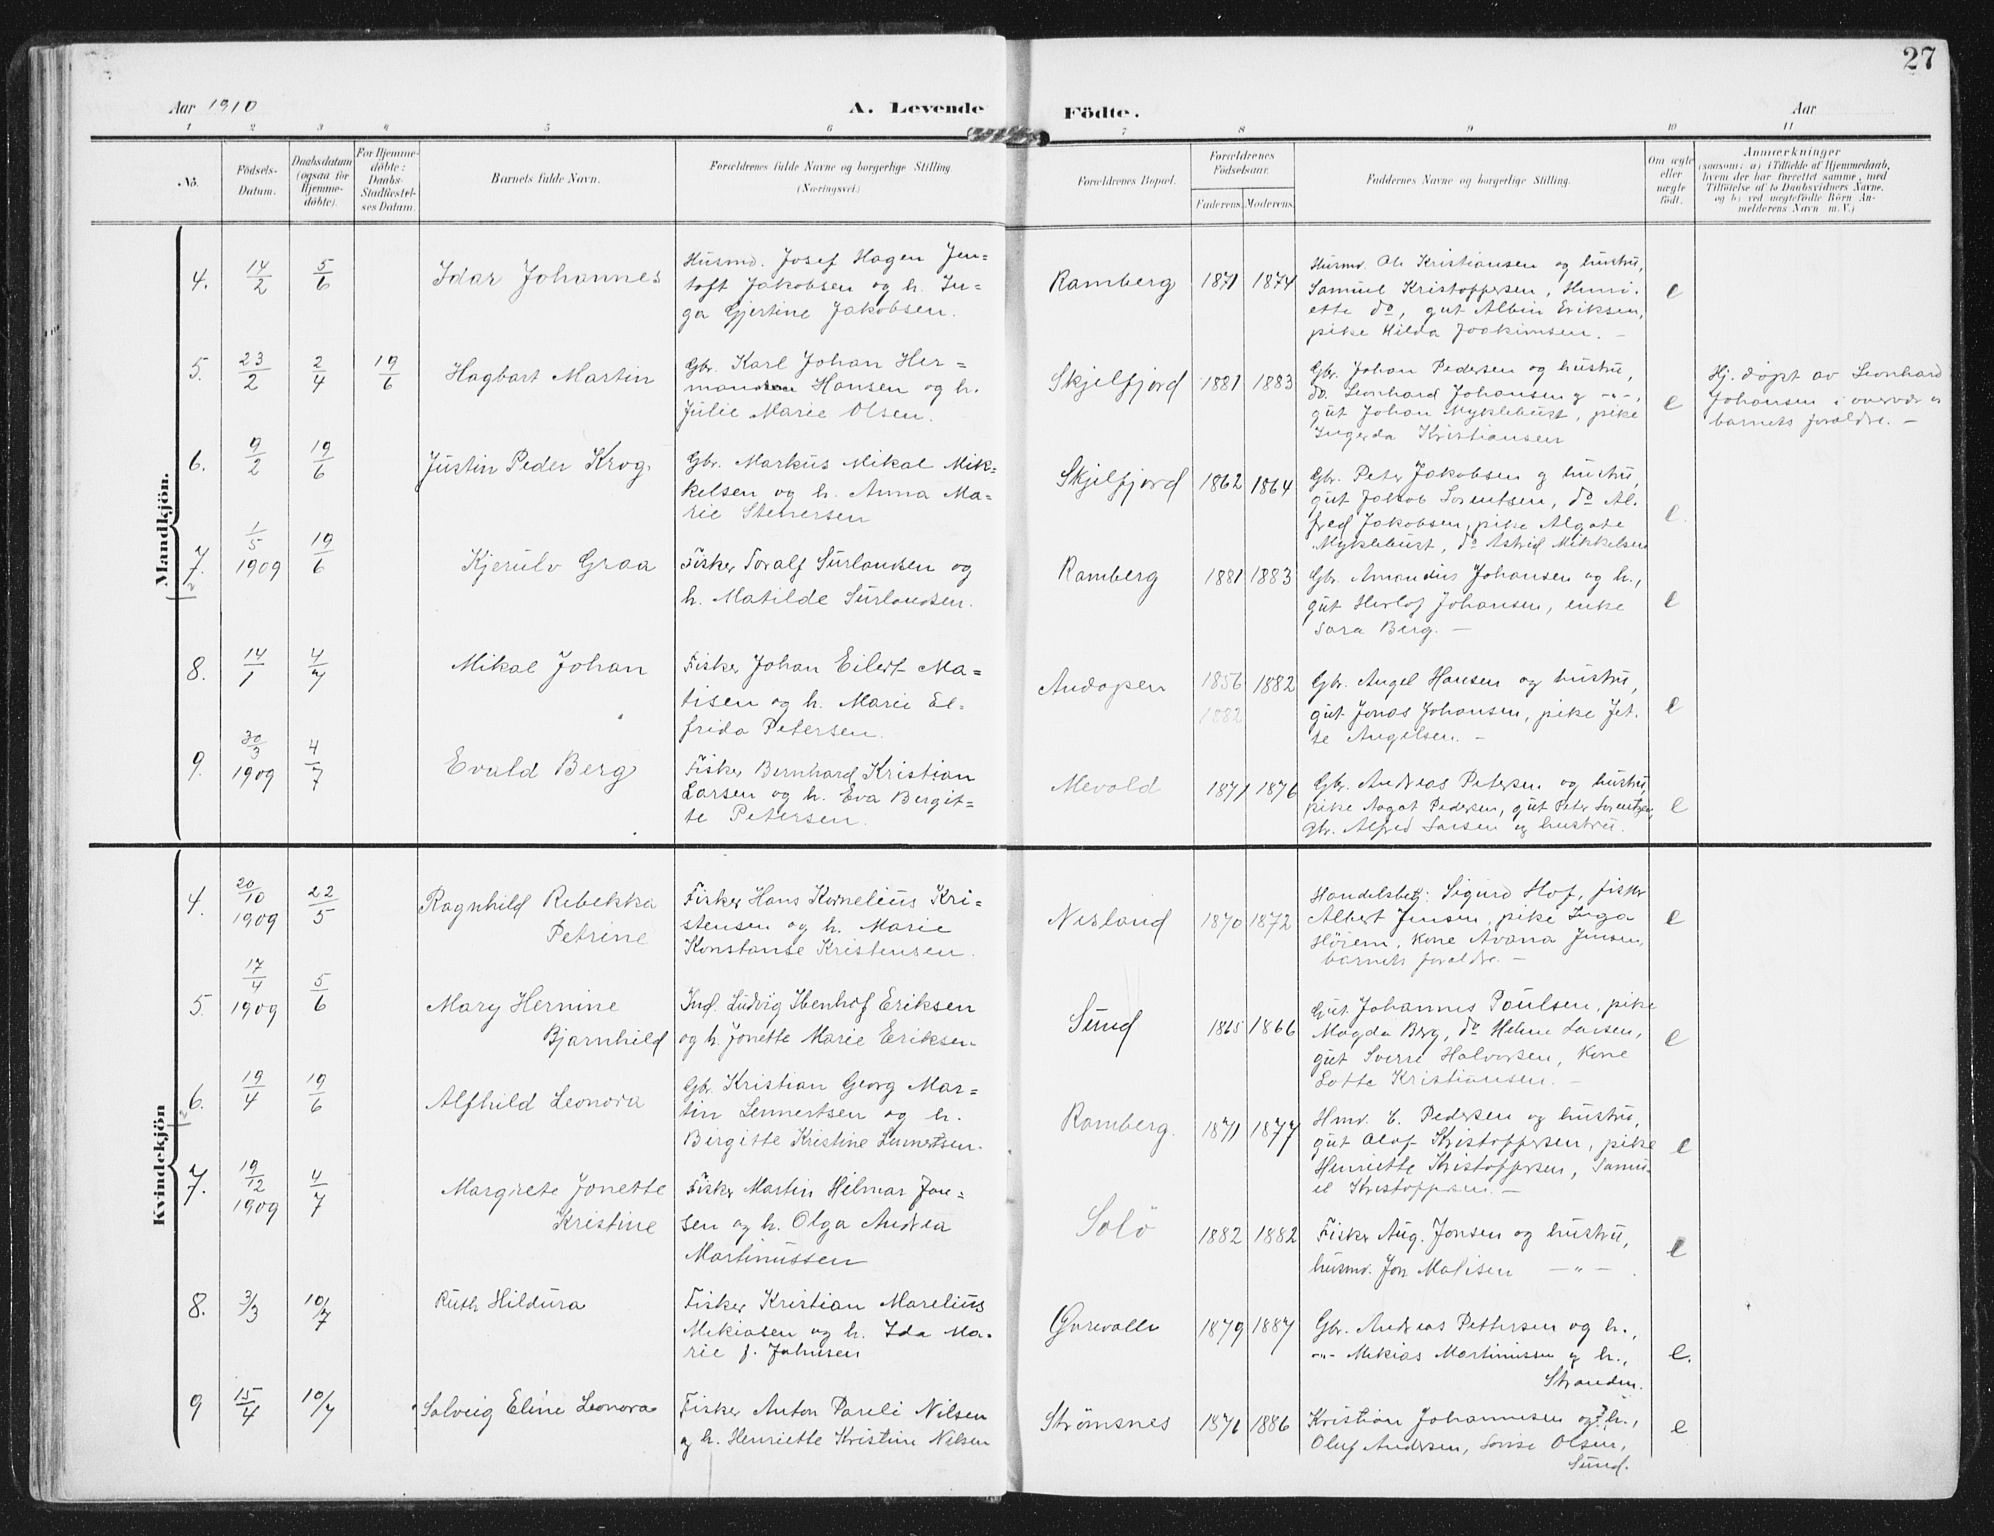 27
Aar 1910
A. Levende
Födte.
Aar
1 2 3 4 5 6 7 8 9 10 11
No.
Födsels-
Datum.
Daabsdatum
(ogsaa for
Hjemme-
döbte).
For Hjemme-
döbte:
Daabs-
Stadfæstel-
ses Datum.
Barnets fulde Navn.
Forældrenes fulde Navne og borgerlige Stilling
(Næringsvei.)
Forældrenes Bopæl.
Forældrenes
Födselsaar.
Faderens. Moderens.
Faddernes Navne og borgerlige Stilling.
Om ægte
eller
uægte
födt.
Anmærkninger
(saasom: a) i Tilfælde af Hjemmedaab,
hvem der har forrettet samme, med
Tilföielse af to Daabsvidners Navne,
og b) ved uægtefödte Börn An-
melderens Navn m. V.)
Mandkjön.
4. 14/2 5/6 Idar Johannes
Husmd. Josef Hagen Jen=
toft Jakobsen og h. In-
ga Gjertine Jakobsen.
Ramberg 1871 1874
Husmd. Ole Kristiansen og hustru,
Samuel Kristoffersen, Henri-
ette do, gut Albin Eriksen,
pike Hilda Joakimsen. -
e
5. 23/2 2/4 19/6 Hagbart Martin
Gbr. Karl Johan Her=
man Hansen og h.
Julie Marie Olsen.
Skjelfjord 1881 1883
Gbr. Johan Pedersen og hustru,
do. Leonhard Johansen og -"-,
gut Johan Myklebust, pike
Ingerda Kristiansen
e
Hj. døpt av Leonhard
Johansen i overvær av
barnets forældre. -
6. 9/2 19/6 Justin Peder Krog.
Gbr. Markus Mikal Mik-
kelsen og h. Anna Ma-
rie Stenersen
Skjelfjord 1862 1864
Gbr. Peter Jakobsen og hustru,
gut Jakob Lorentsen, do Al-
fred Jakobsen, pike Algate
Myklebust, do Astrid Mikkelsen
e.
7. 1/5 1909 19/6 Kjerulv Graa
Fisker Toralf Surlandsen og
h. Matilde Surlandsen.
Ramberg 1881 1883
Gbr. Amandus Johansen og h.,
gut Herlof Johansen, enke
Sara Berg. -
e
8. 14/1 4/7 Mikal Johan
Fisker Johan Eilert Ma-
tisen og h. Marie El-
frida Petersen.
Andopen 1856 1882
1882
Gbr. Angel Hansen og hustru,
gut Jonas Johansen, pike Jet-
te Angelsen. -
e
9. 30/3 1909 4/7 Evald Berg
Fisker Bernhard Kristian
Larsen og h. Eva Bergit-
te Petersen.
Mevold 1871 1876
Gbr. Andreas Petersen og hustru,
pike Aagot Pedersen, gut Peter Lorentzen,
gbr. Alfred Larsen og hustru.
e
Kvindekjön
4. 20/10 1909 22/5 Ragnhild Rebekka
Petrine
Fisker Hans Kornelius Kri-
stensen og h. Marie
Konstanse Kristensen.
Nesland 1870 1872
Handelsbetj. Sigurd Hof, fisker
Albert Jensen, pike Inga
Høiem, kone Avana Jensen,
barnets forældre. -
e
5. 17/4 1909 5/6 Mary Hermine
Bjarnhild
Ind. Ludvig Ibenhof Eriksen
og h. Jonette Marie Eriksen.
Sund 1865 1866
Gut Johannes Poulsen, pike
Magda Berg, do Helene Larsen,
gut Sverre Halvorsen, kone
Lotte Kristiansen. -
e
6. 19/4 19/6 Alfhild Leonora
Gbr. Kristian Georg Mar-
tin Lennertsen og h.
Birgitte Kristine Lennertsen.
Ramberg. 1871 1877
Hmd. E. Pedersen og hustru,
gut Olaf Kristoffersen, pike
Henriette Kristoffersen, Samu-
el Kristoffersen. -
e
7. 19/12 1909 4/7 Margrete Jonette
Kristine
Fisker Martin Hilmar Jon-
sen og h. Olga Andrea
Martinussen
Solö 1882 1882
Fisker Aug. Jonsen og hustru,
husmd. Jon Matisen -"-.
e
8. 3/3 10/7 Ruth Hildura
Fisker Kristian Marelius
Mekiasen og h. Ida Ma-
rie f. Johnsen
Gorevalle 1879 1887
Gbr. Andreas Pettersen og h.,
-"- Mekias Martinussen og h.,
Stranden.
e.
9 15/4 10/7 Solveig Eline Leonora
Fisker Anton Pareli Nilsen
og h. Henriette Kristine Nilsen
Strömsnes 1871 1886
Kristian Johannesen og h.,
Oluf Andersen, Olsen,
Sund.
e